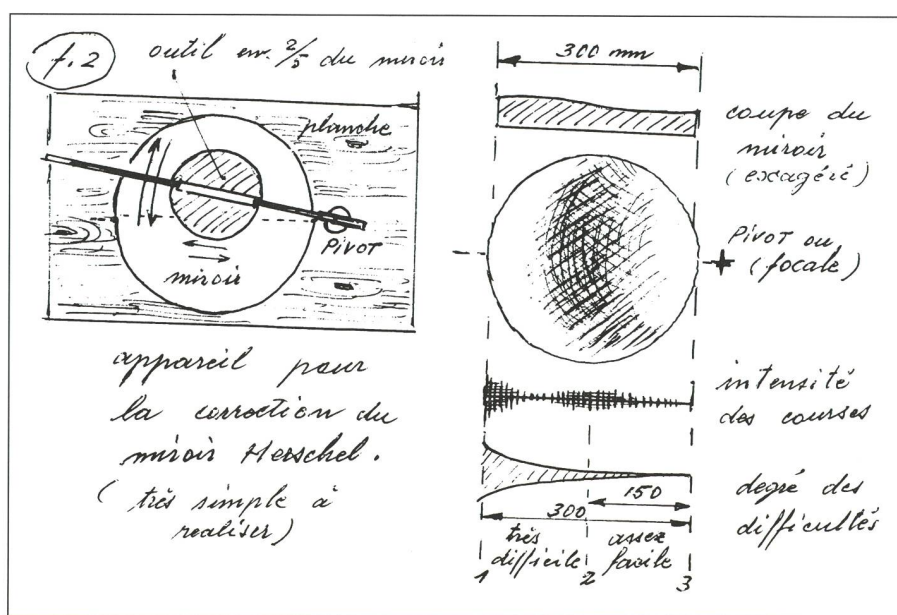 f.2
outil env. 2/5 du miroir
planche
PIVOT
miroir
appareil pour
la correction du
miroir Herschel.
( très simple à
realiser)
300 mm
coupe du
miroir
(exagéré)
PIVOT ou
(focale)
intensité
des courses
degré des
difficultés
150
300
très
difficile
assez
facile
1 2 3